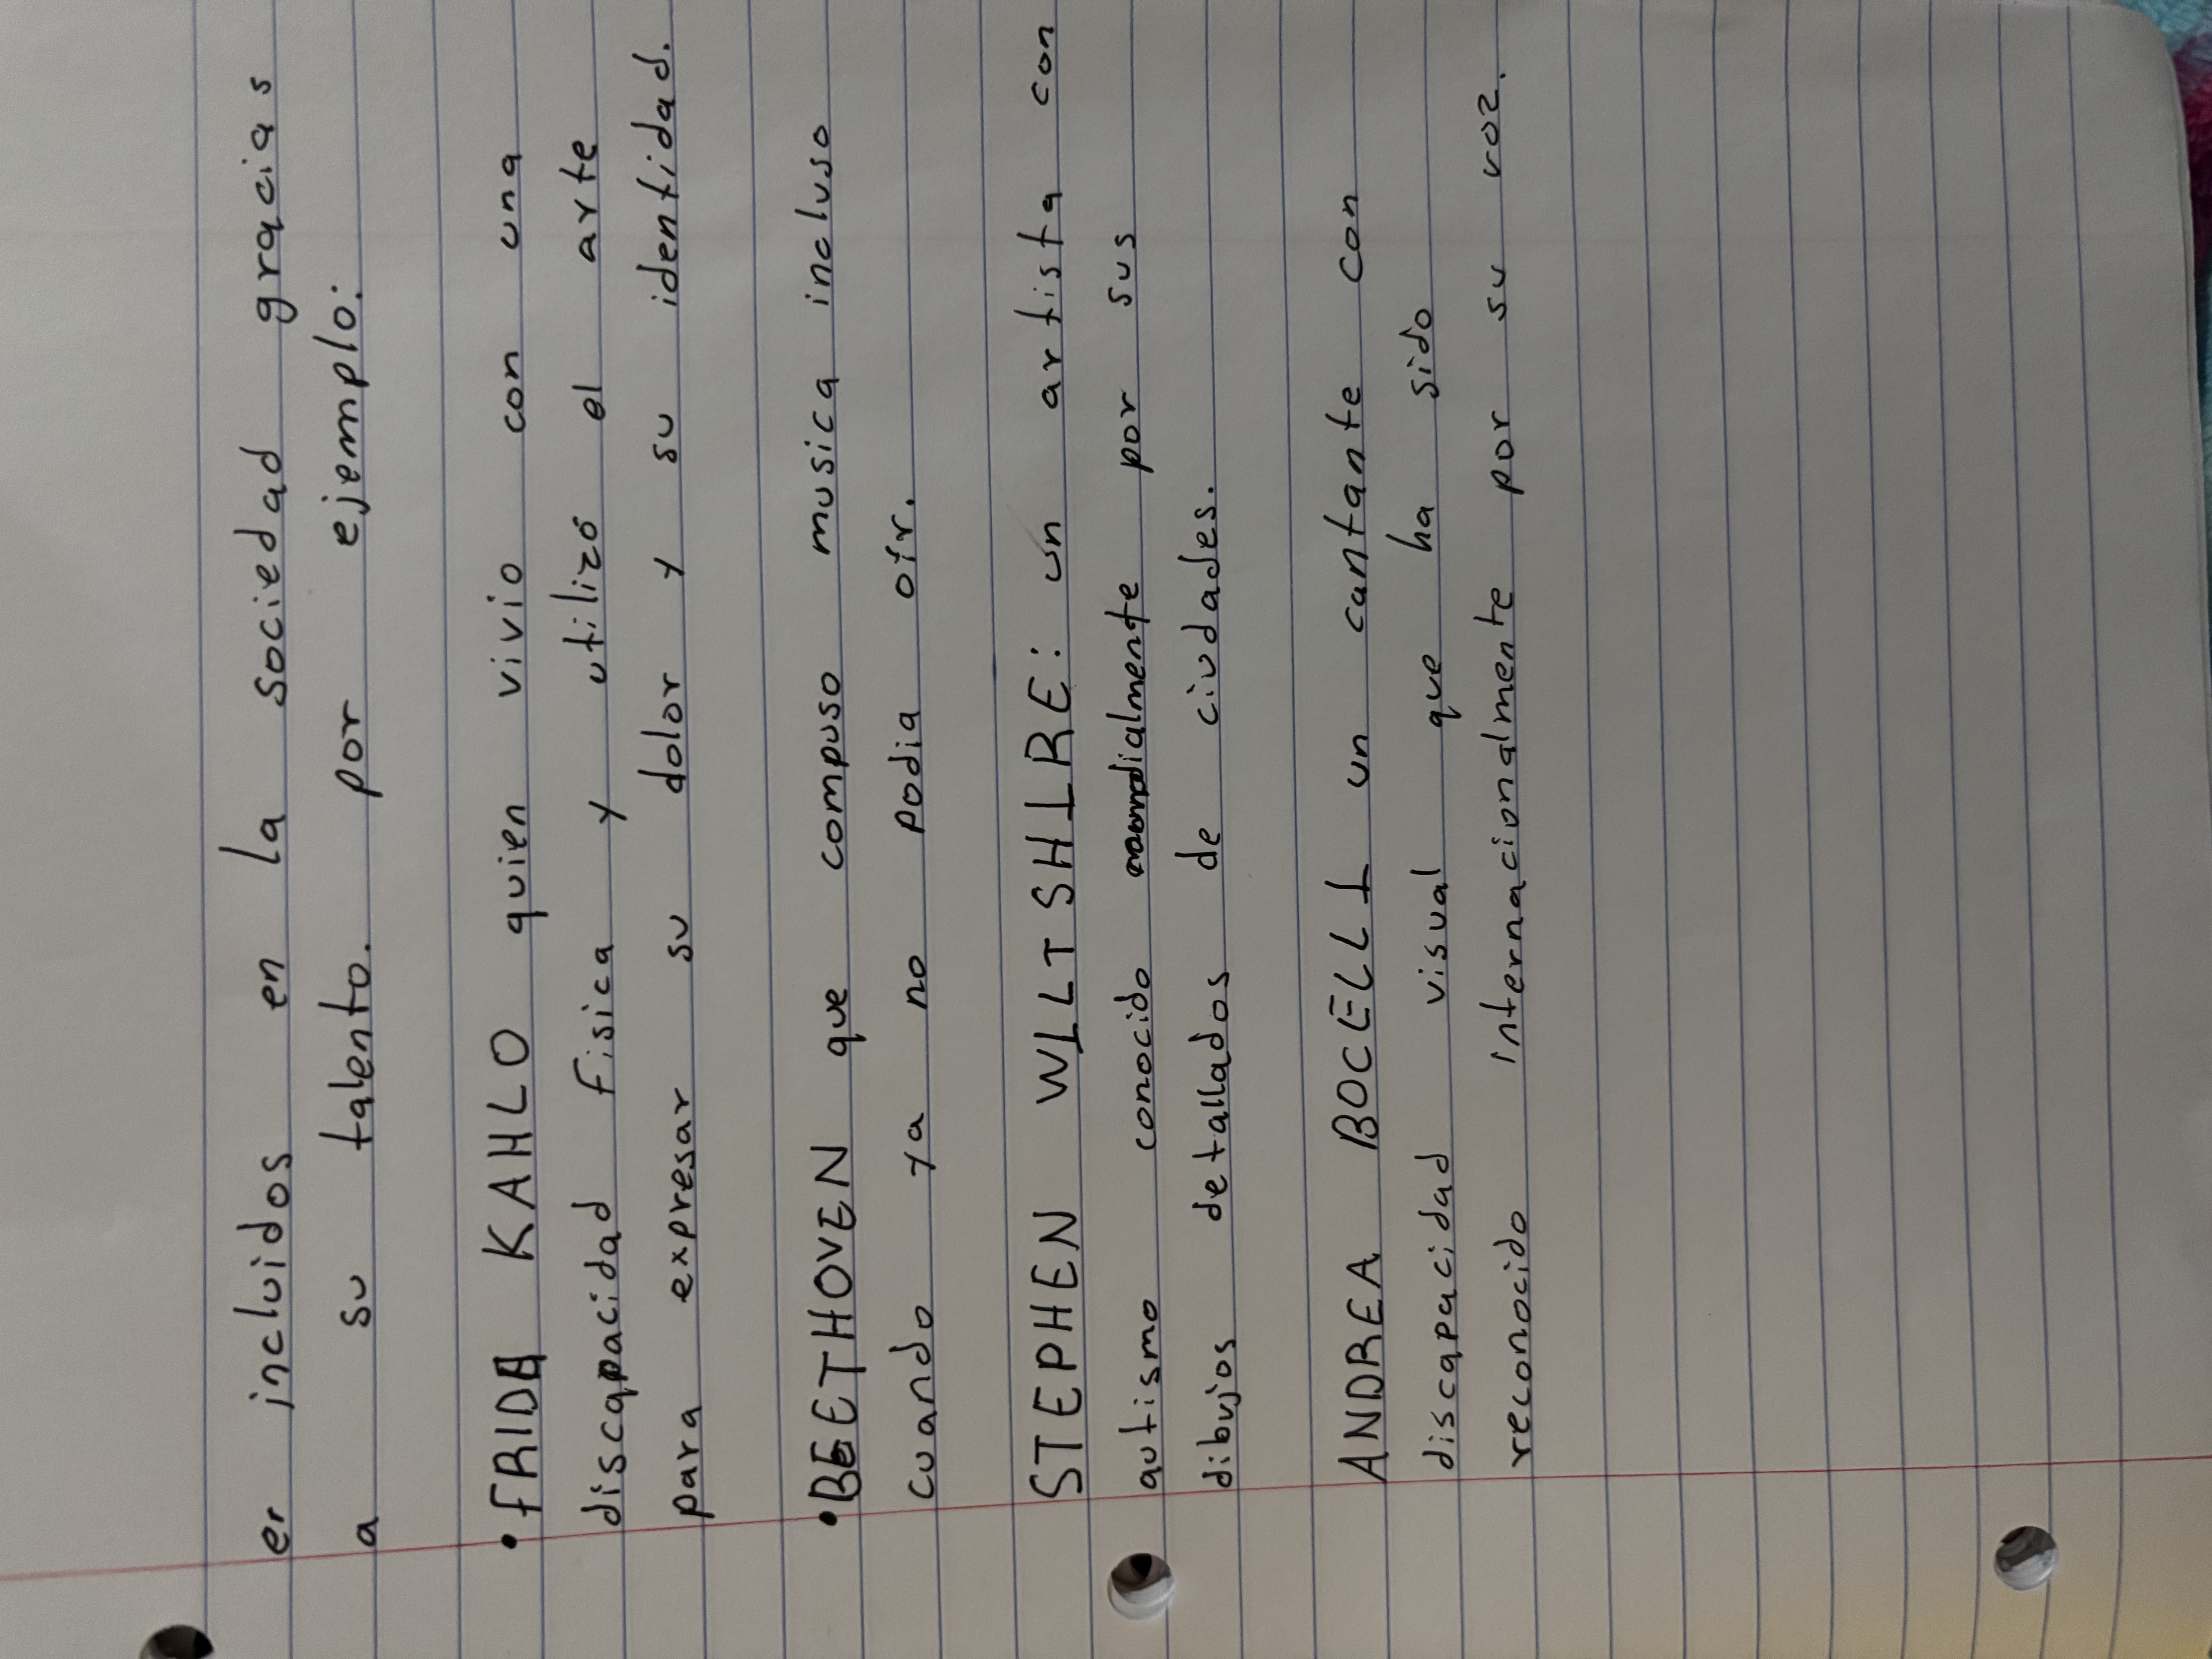 er incluidos en la sociedad gracias
a su talento. por ejemplo:
• FRIDA KAHLO quien vivio con una
discapacidad fisica y utilizó el arte
para expresar su dolor y su identidad.
• BEETHOVEN que compuso musica incluso
cuando ya no podia oír.
STEPHEN WILTSHIRE: un artista con
autismo conocido mundialmente por sus
dibujos detallados de ciudades.
ANDREA BOCELLI un cantante con
discapacidad visual que ha sido
reconocido internacionalmente por su voz.